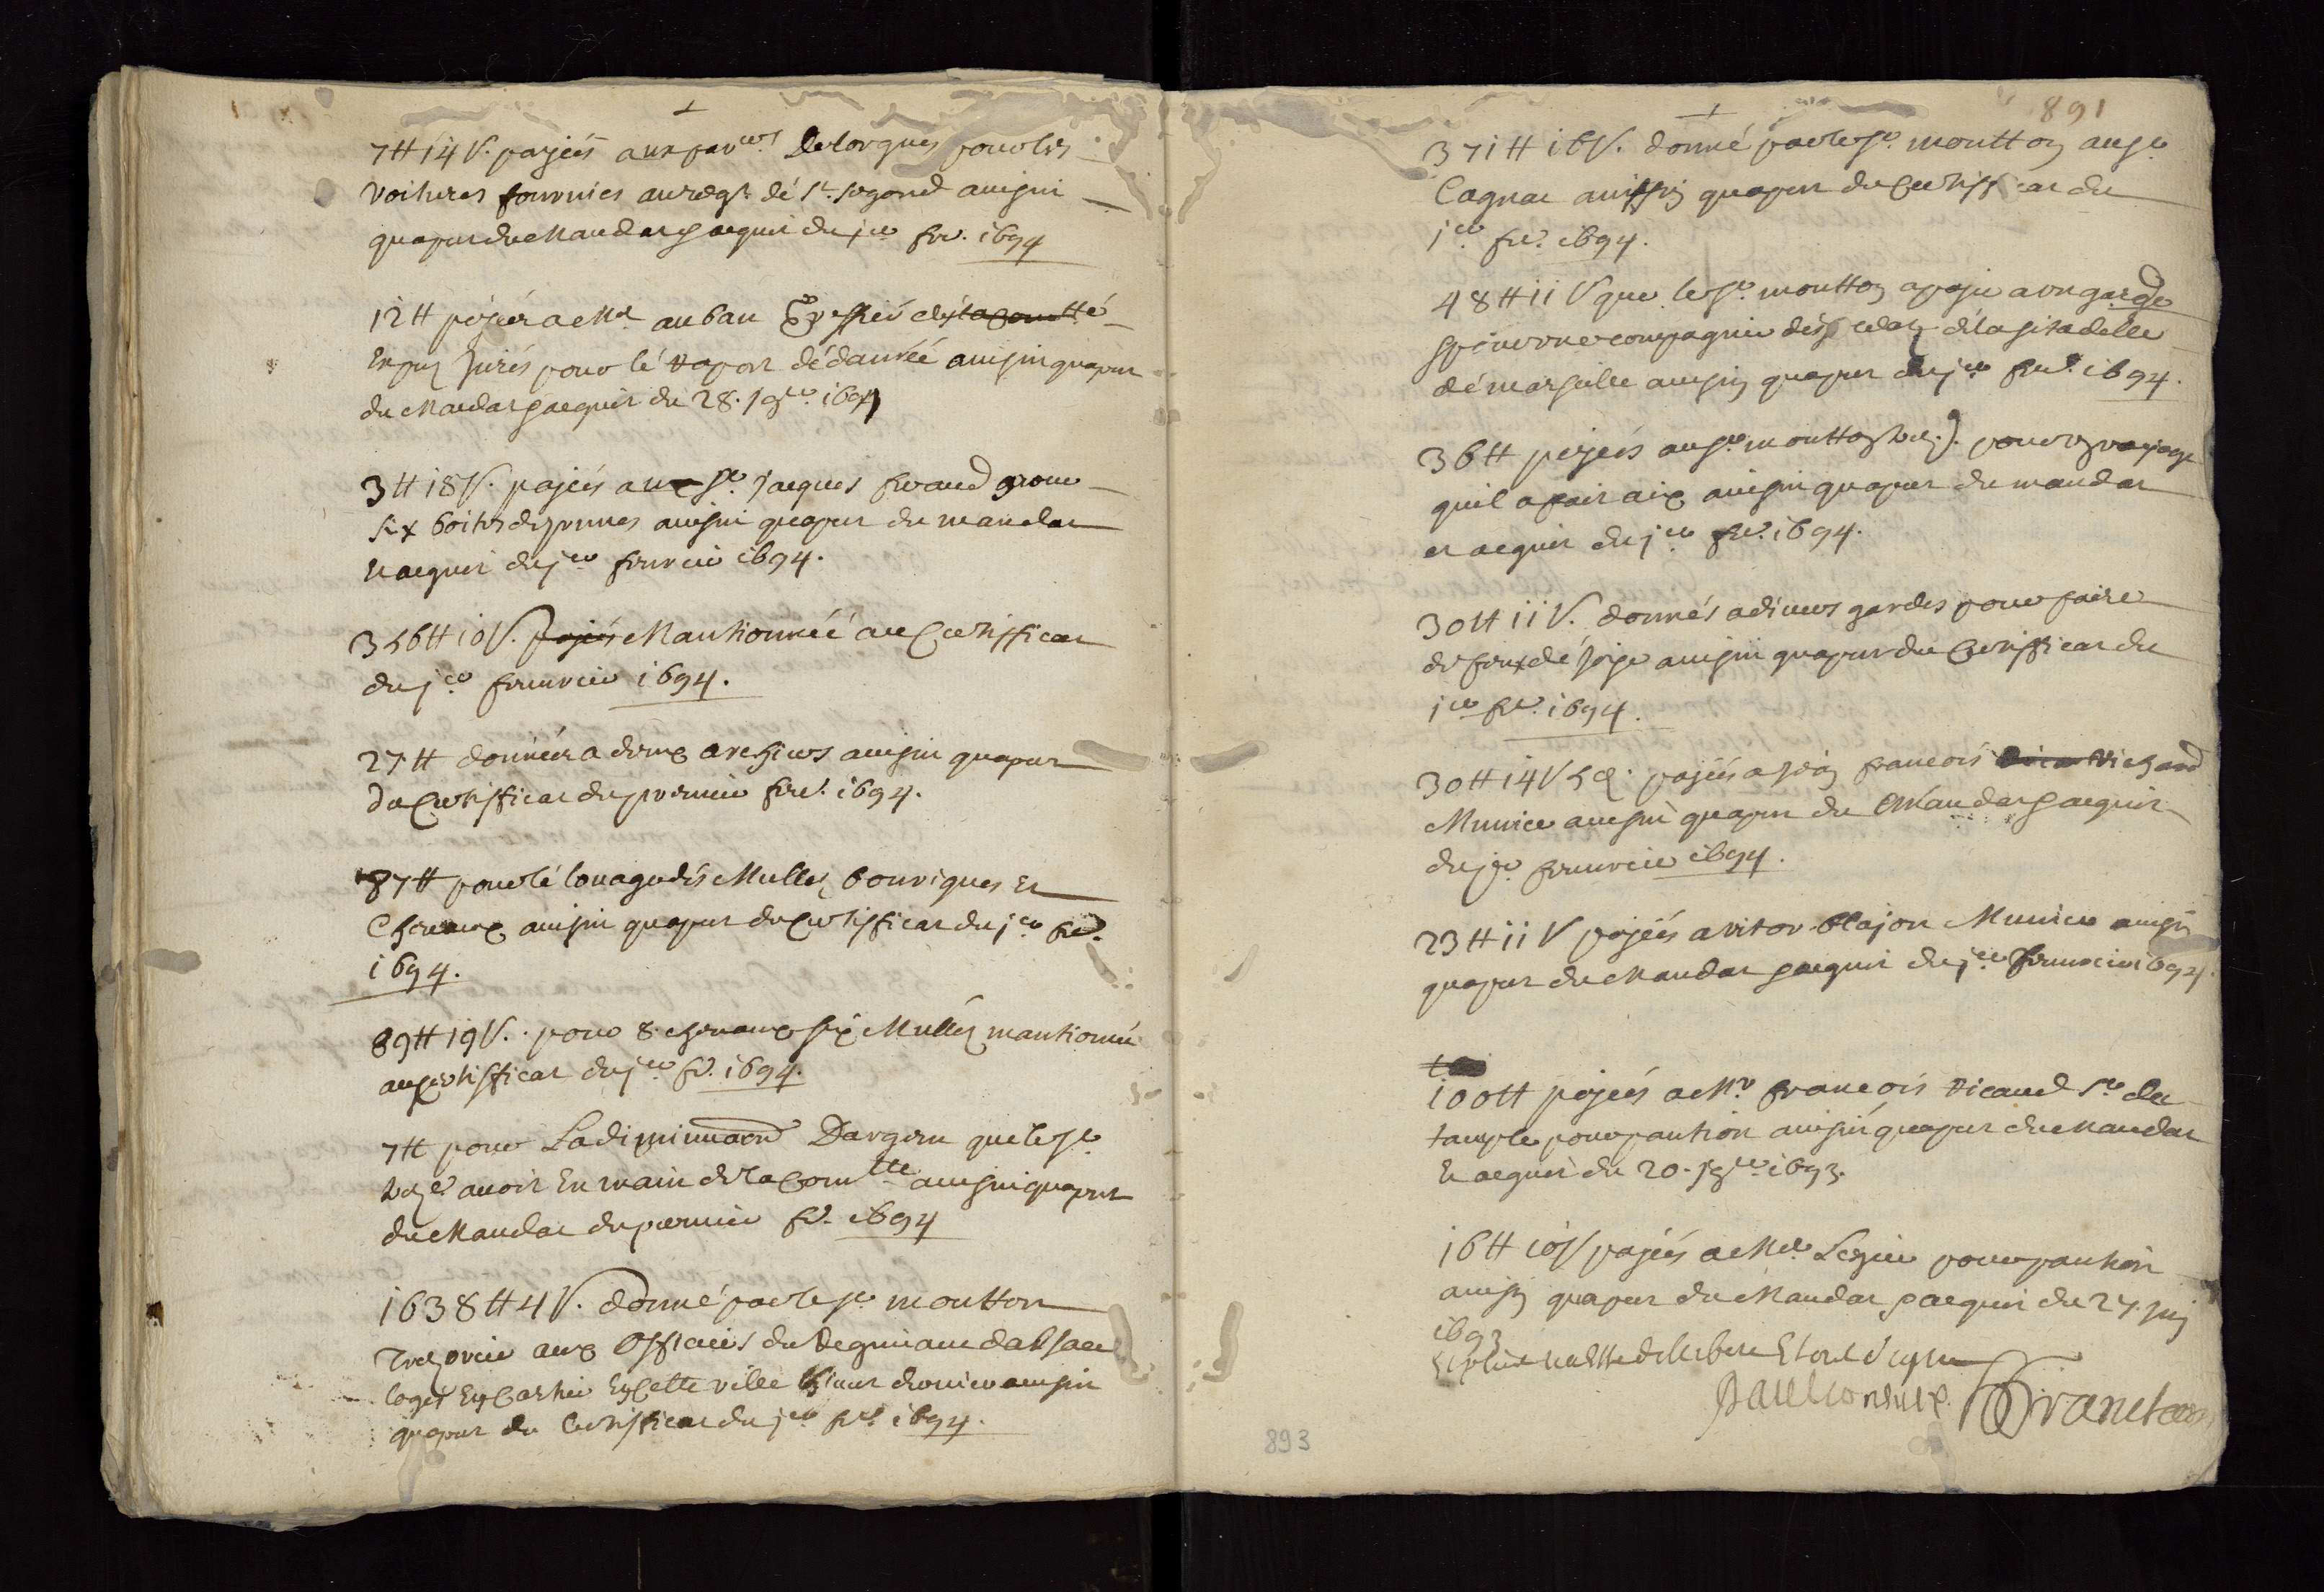 7 ₶ 14 s. payées aux Delorgues pour les
voitures fournies au regt. dé st. segond ainsin
quapert du mandat & acquit du jer fer. 1694
12 ₶ payées a Me auban greffié
Expers jurés pour lé raport dé ainsin quapert
du mandat & acquit du 28. 9bre. 1694
3 ₶ 18 s. payées au sr. jacques feraud pour
six boites de prunes ainsin quapert du mandat
Et acquit du jer feuvrier 1694.
356 ₶ 10 s. mantionnéé au Certifficat
du jer feuvrier 1694.
27 ₶ donnéés a deux archiers ainsin quapert
du Certifficat du premier fer. 1694.
87 ₶ pour lé louage dés Mulles bouriques Et
Cheuaux ainsin quapert du Certifficat du jer fer.
1694.
89 ₶ 19 s. pour 8 cheuaux six Mulles mantionné
au certifficat du jer fer. 1694.
7 ₶ pour La diminuaon Dargent que le sr
trezr. auoit En main de la Commtté ainsin quapert
du Mandat du permier fer. 1694
1638 ₶ 4 s. donné par le sr moutton
Trezorier aux Officiers du Regimant dalsace
logés En cartier En cette ville ainsin
quapert du Certifficat du jer fer. 1694.
891
371 ₶ 16 s. donné par le sr. moutton au sr
Cagnac ainssin quapert du Certifficat du
jer. fer. 1694.
48 ₶ 11 s que le sr. moutton a payé a un garde
compagnie dés de la sitadelle
dé marseille ainsin quapert du jer fer. 1694.
36 ₶ payées au sr moutton trezr. pour un voyage
quil a fait a aix ainsin quapert du mandat
et acquit du jer fer. 1694.
30 ₶ 11 s. donnés a diuers gardes pour faire
de feux dé joye ainsin quapert du Certifficat du
jer fer. 1694.
30 ₶ 14 s 5 d. payées a jean francois Richard
Munier ainsin quapert du Mandat & acquit
du jer feuvrier 1694.
23 ₶ 11 s payées a vitor blajon Munier ainsin
quapert du Mandat & acquit du jer feuvrier 1694.
100 ₶ payées a Mr francois ricaud sr du
tample pour pantion ainsin quapert du Mandat
Et acquit du 20. 9bre 1693.
16 ₶ 10 s payées a Me Legier pour pantion
ainsin quapert du Mandat & acquit du 27. juin
1693
Et tout signe
Paul consul
893